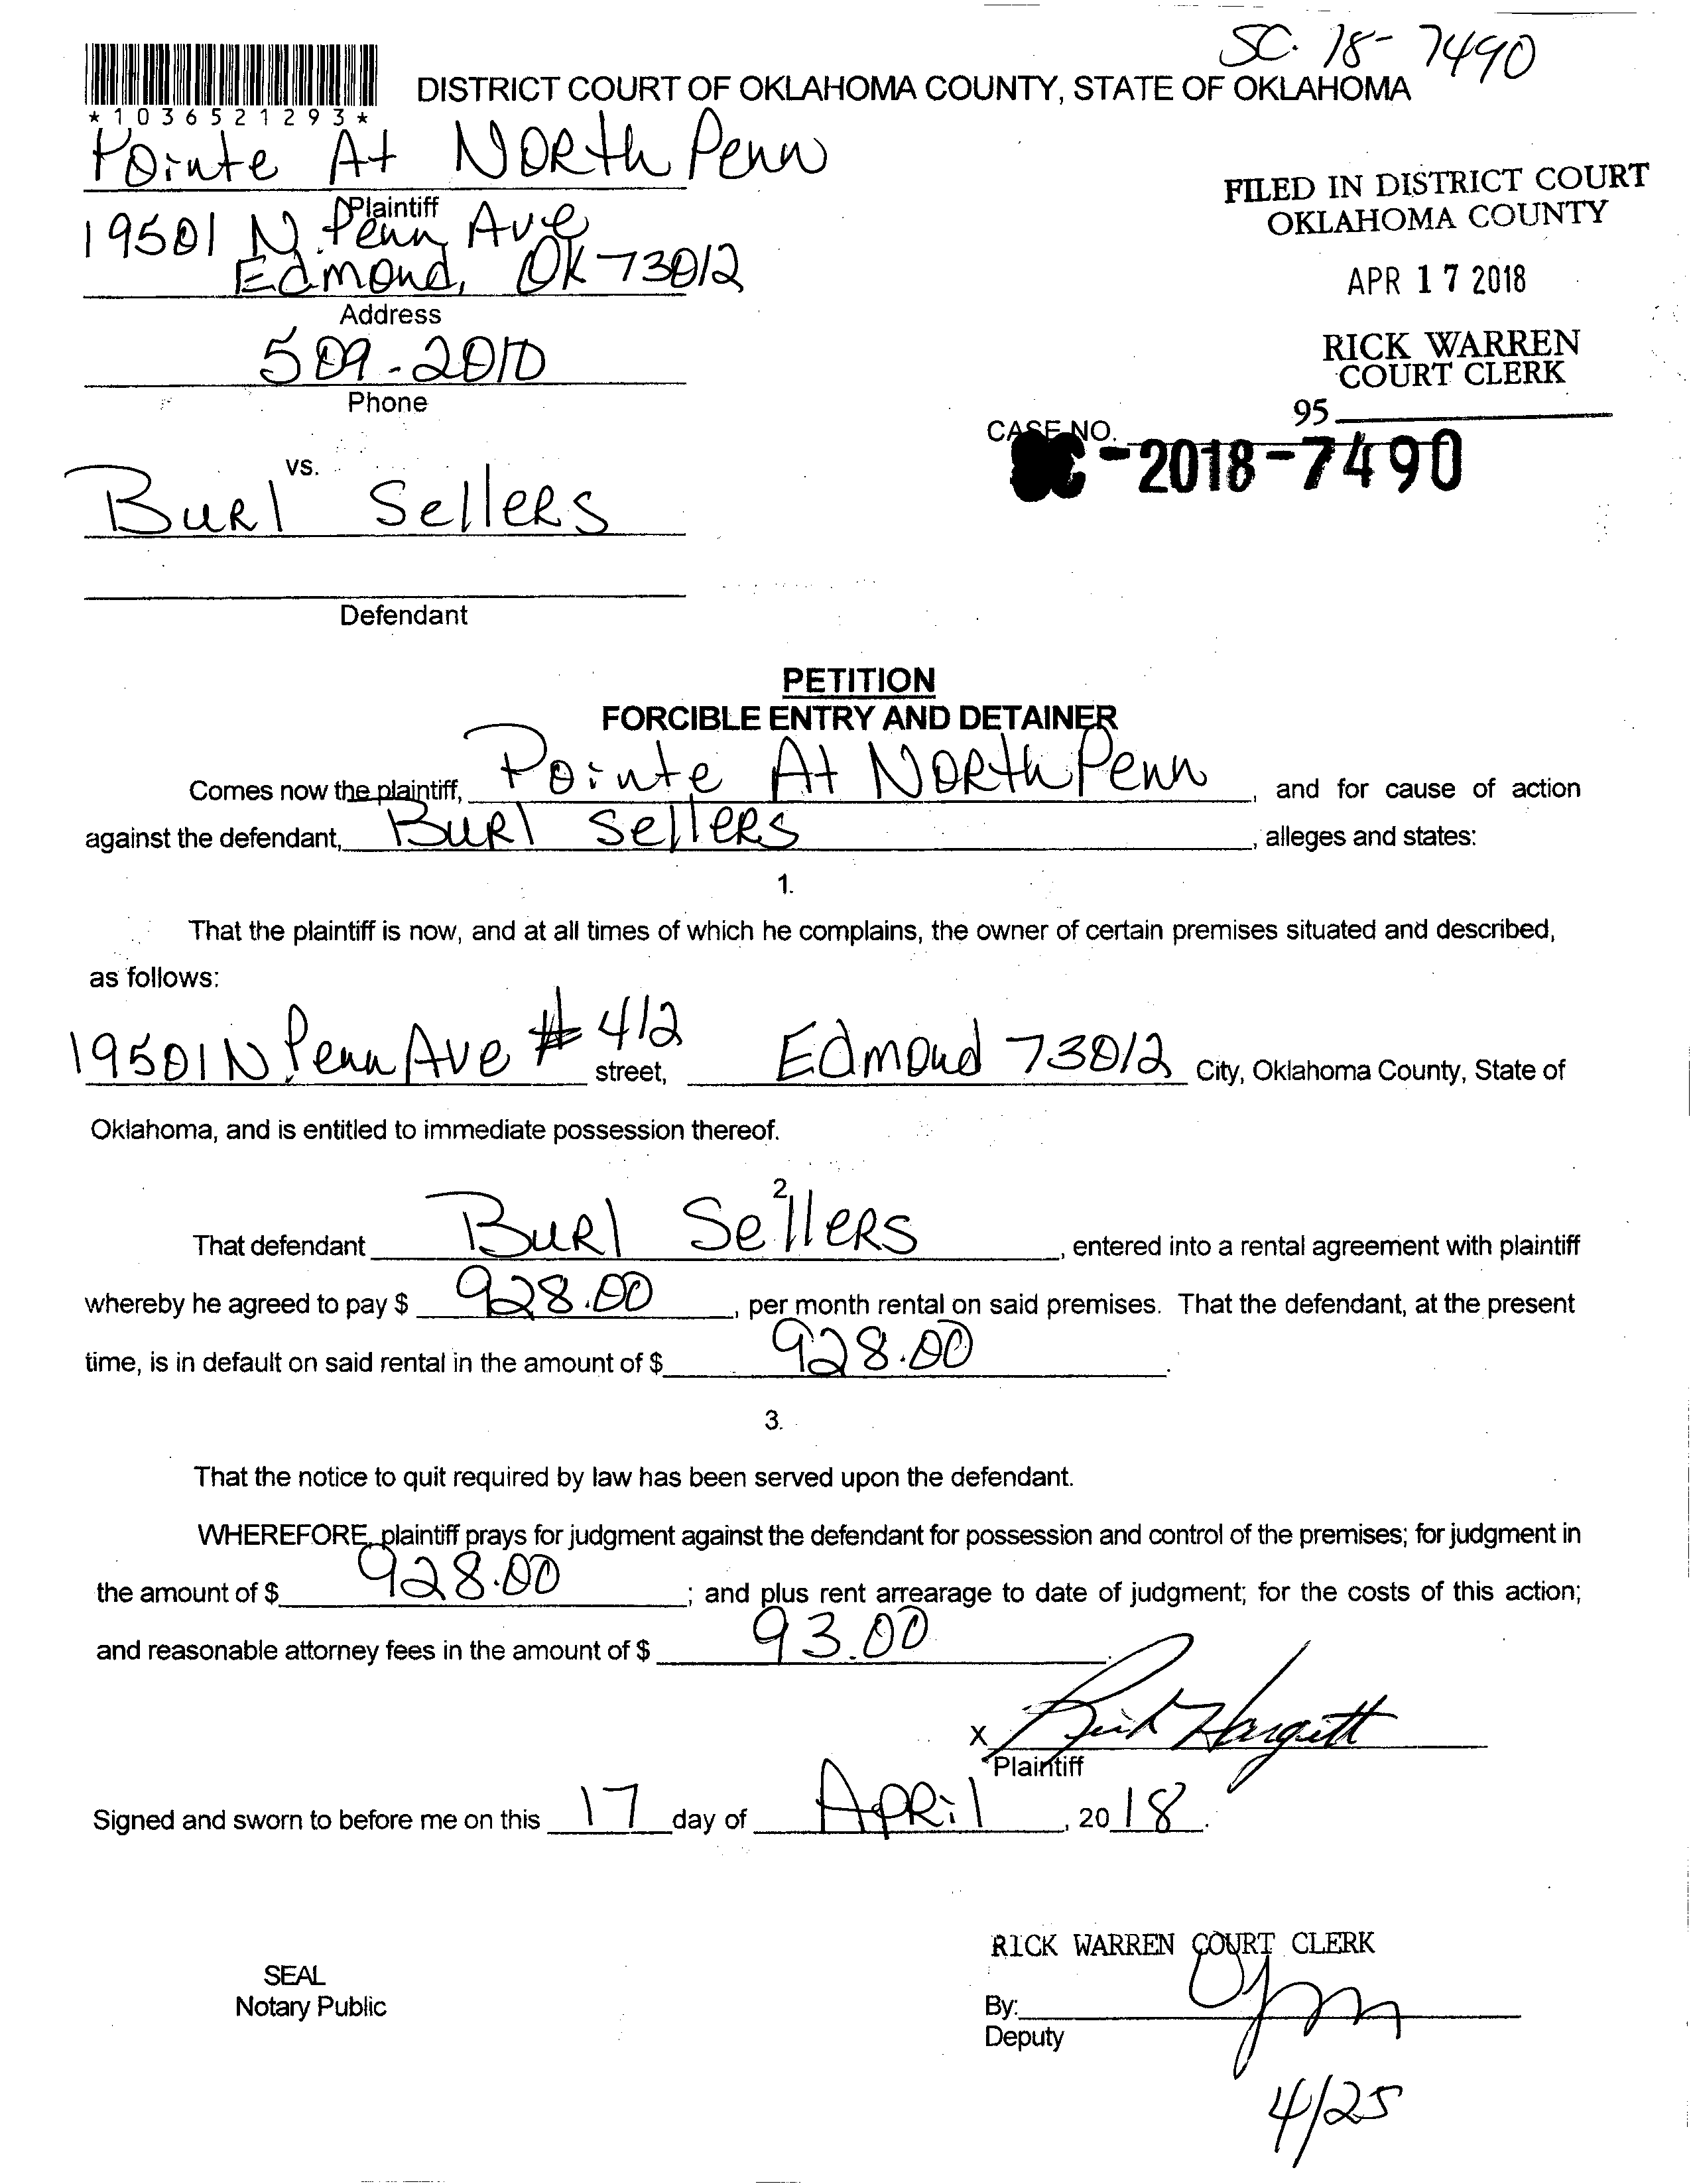 SC. 18-7490
*1036521293*
DISTRICT COURT OF OKLAHOMA COUNTY, STATE OF OKLAHOMA
Pointe At NORth Penn
Plaintiff
19501 N. Penn Ave
Edmond, OK 73012
Address
509-2010
Phone
FILED IN DISTRICT COURT
OKLAHOMA COUNTY
APR 17 2018
RICK WARREN
COURT CLERK
95
CASE NO.
-2018-7490
vs.
BuRl SelleRS
Defendant
PETITION
FORCIBLE ENTRY AND DETAINER
Comes now the plaintiff, Pointe At NORth Penn, and for cause of action
against the defendant, BuRl SelleRS, alleges and states:
1.
That the plaintiff is now, and at all times of which he complains, the owner of certain premises situated and described,
as follows:
19501 N Penn Ave # 412 street, Edmond 73012 City, Oklahoma County, State of
Oklahoma, and is entitled to immediate possession thereof.
2.
That defendant BuRl SelleRS, entered into a rental agreement with plaintiff
whereby he agreed to pay $ 928.00, per month rental on said premises. That the defendant, at the present
time, is in default on said rental in the amount of $ 928.00.
3.
That the notice to quit required by law has been served upon the defendant.
WHEREFORE, plaintiff prays for judgment against the defendant for possession and control of the premises; for judgment in
the amount of $ 928.00; and plus rent arrearage to date of judgment; for the costs of this action;
and reasonable attorney fees in the amount of $ 93.00.
x Rick Hargett
Plaintiff
Signed and sworn to before me on this 17 day of APRil, 2018.
RICK WARREN COURT CLERK
SEAL
Notary Public
By:
Deputy
4/25